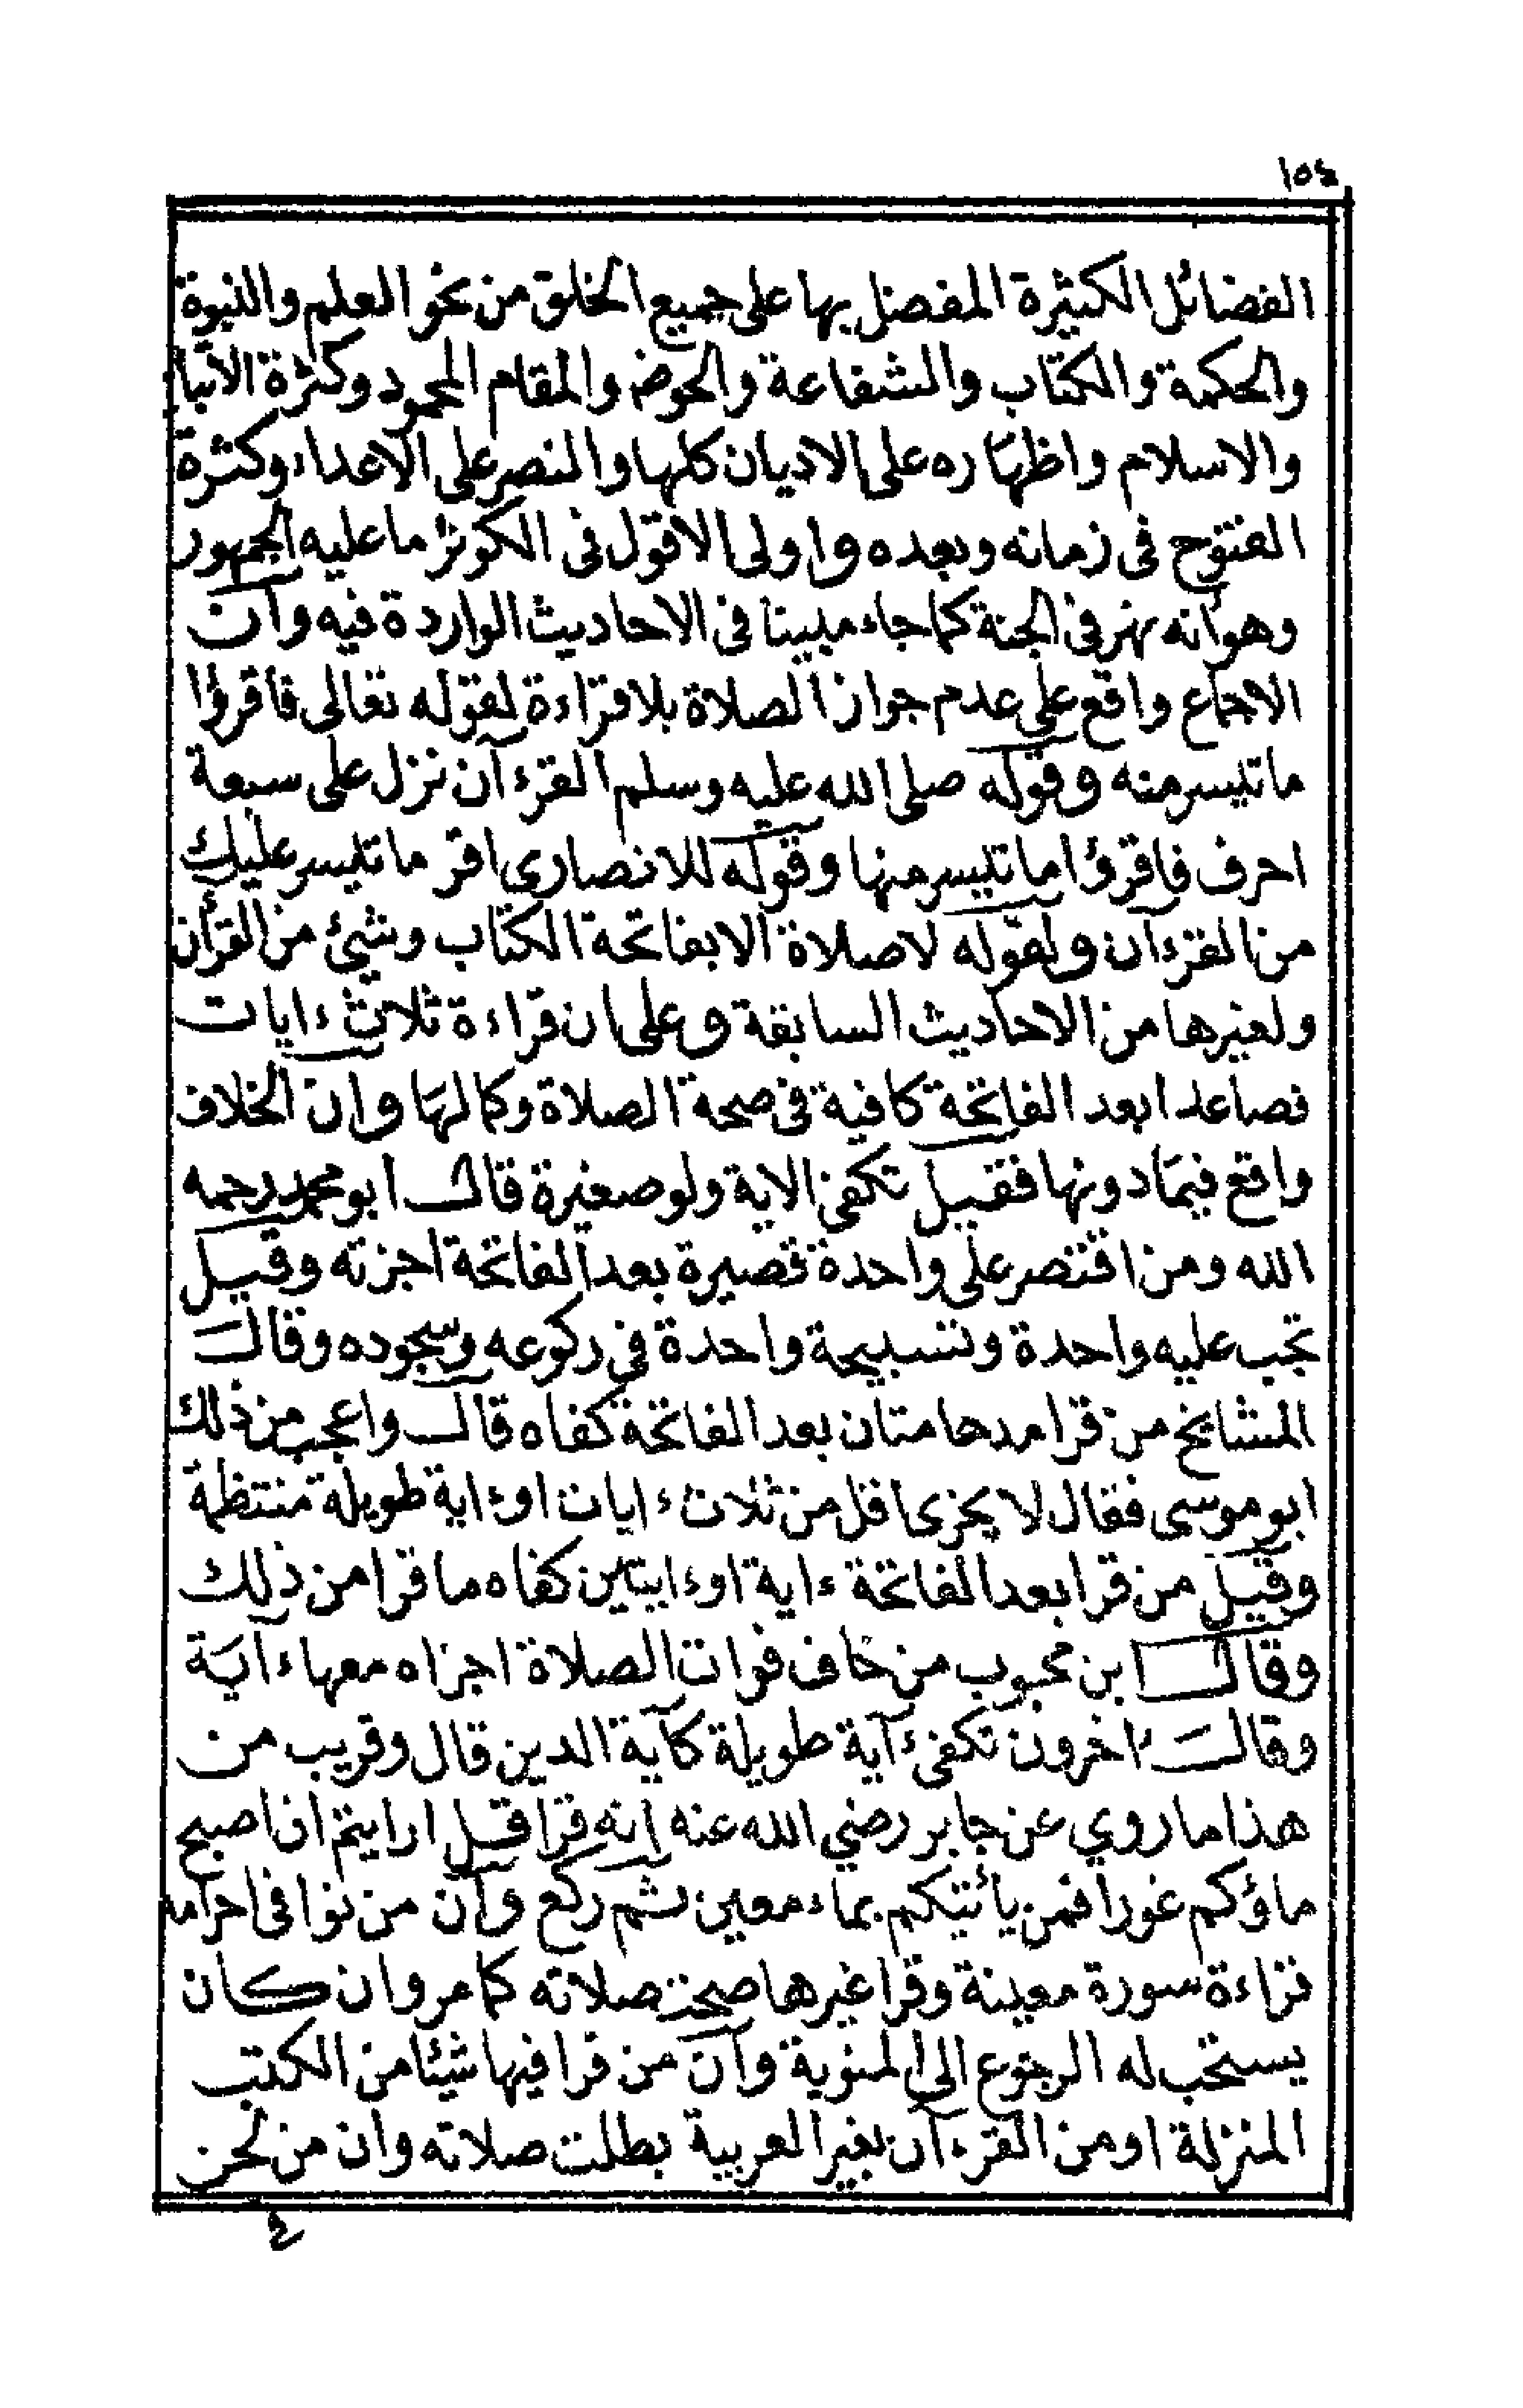 ١٥٤
الفضائل الكثيرة المفضل بها على جميع الخلق من نحو العلم والنبوة
والحكمة والكتاب والشفاعة والحوض والمقام المحمود وكثرة الاتبا
والاسلام واظهاره على الاديان كلها والنصر على الاعداء وكثرة
الفتوح فى زمانه وبعده واولى الاقول فى الكوثر ما عليه الجمهور
وهو انه نهر فى الجنة كما جاء مبينا فى الاحاديث الواردة فيه وان
الاجماع واقع على عدم جواز الصلاة بلا قراءة لقوله تعالى فاقرؤا
ما تيسر منه وقوله صلى الله عليه وسلم القرءآن نزل على سبعة
احرف فاقرؤا ما تيسر منها وقوله للانصارى اقر ما تيسر عليك
من القرءآن ولقوله لا صلاة الا بفاتحة الكتاب وشئ من القرأن
ولغيرها من الاحاديث السابقة وعلى ان قراءة ثلاث ءايات
فصاعدا بعد الفاتحة كافية فى صحة الصلاة وكمالها وان الخلاف
واقع فيما دونها فقيل تكفى الاية ولو صغيرة قال ابو محمد رحمه
الله ومن اقتصر على واحدة قصيرة بعد الفاتحة اجزته وقيل
تجب عليه واحدة وتسبيحة واحدة فى ركوعه وسجوده وقال
المشايخ من قرا مدهامتان بعد الفاتحة كفاه قال واعجب من ذلك
ابو موسى فقال لا يجزى اقل من ثلاث ءايات او ءاية طويلة منتظمة
وقيل من قرا بعد الفاتحة ءاية او ءايتين كفاه ما قرا من ذلك
وقال ابن محبوب من خاف فوات الصلاة اجزاه معها ءآية
وقال ءاخرون تكفى ءآية طويلة كآية الدين قال وقريب من
هذا ما روي عن جابر رضي الله عنه انه قرا قل ارايتم ان اصبح
ماؤكم غورا فمن يأتيكم بماء معين ثم ركع وان من نوا فى احرامه
قراءة سورة معينة وقرا غيرها صحت صلاته كما مر وان كان
يستحب له الرجوع الى المنوية وان من قرا فيها شيئا من الكتب
المنزلة او من القرءآن بغير العربية بطلت صلاته وان من لحن